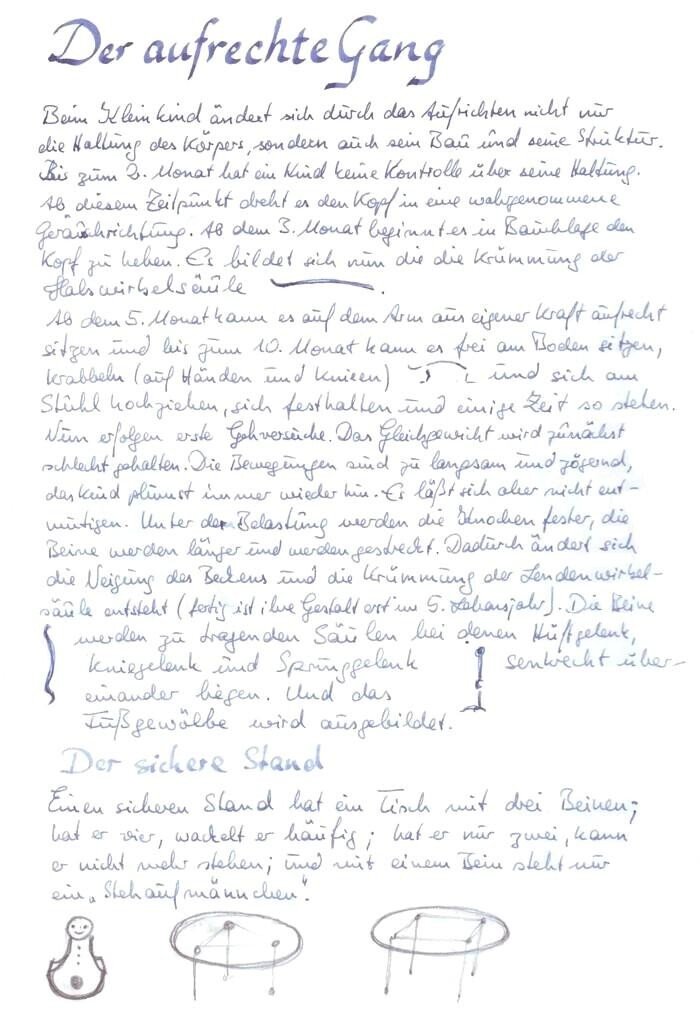 Der aufrechte Gang
Beim Kleinkind ändert sich durch das Aufrichten nicht nur
die Haltung des Körpers, sondern auch sein Bau und seine Struktur.
Bis zum 2. Monat hat ein Kind keine Kontrolle über seine Haltung.
Ab diesem Zeitpunkt dreht es den Kopf in eine wahrgenommene
Geräuschrichtung. Ab dem 3. Monat beginnt es in Bauchlage den
Kopf zu heben. Es bildet sich nun die die Krümmung der
Halswirbelsäule .
Ab dem 5. Monat kann es auf dem Arm aus eigener Kraft aufrecht
sitzen und bis zum 10. Monat kann es frei am Boden sitzen,
krabbeln (auf Händen und Knieen) und sich am
Stuhl hochziehen, sich festhalten und einige Zeit so stehen.
Nun erfolgen erste Gehversuche. Das Gleichgewicht wird zunächst
schlecht gehalten. Die Bewegungen sind zu langsam und zögernd,
das Kind plumst immer wieder hin. Es läßt sich aber nicht ent-
mutigen. Unter der Belastung werden die Knochen fester, die
Beine werden länger und werden gestreckt. Dadurch ändert sich
die Neigung des Beckens und die Krümmung der Lendenwirbel-
säule entsteht (fertig ist ihre Gestalt erst im 5. Lebensjahr). Die Beine
werden zu tragenden Säulen bei denen Hüftgelenk,
Kniegelenk und Sprunggelenk senkrecht über-
einander liegen. Und das
Fußgewölbe wird ausgebildet.
Der sichere Stand
Einen sicheren Stand hat ein Tisch mit drei Beinen;
hat er vier, wackelt er häufig; hat er nur zwei, kann
er nicht mehr stehen; und mit einem Bein steht nur
ein „Stehaufmännchen".